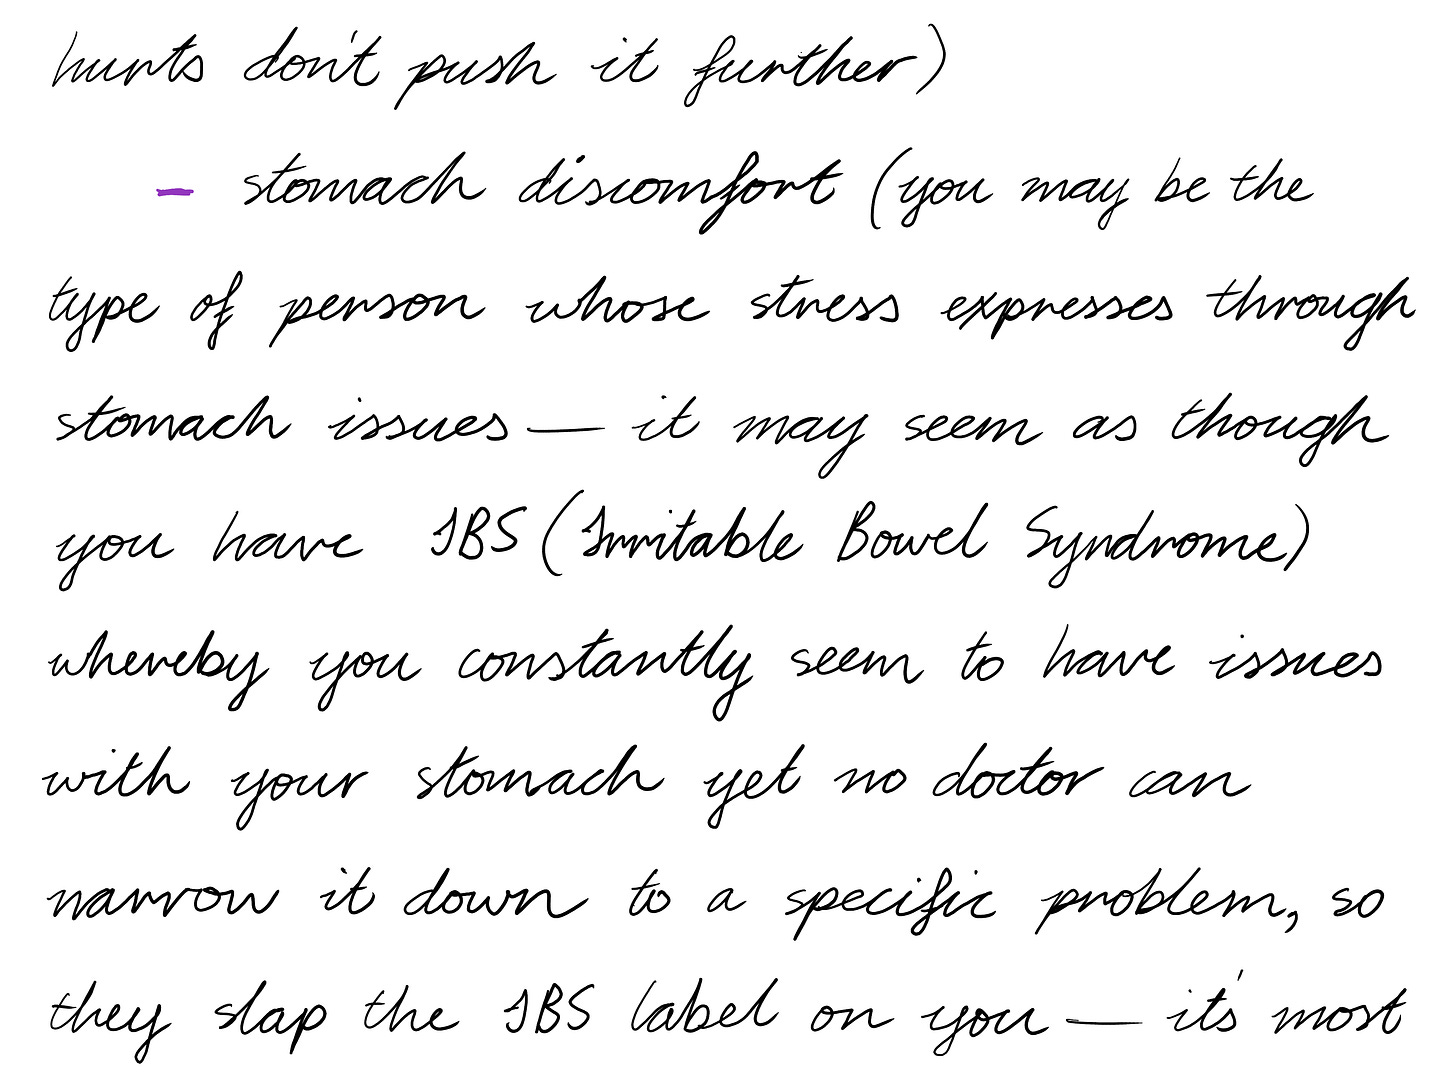 hurts don't push it further)
- stomach discomfort (you may be the
type of person whose stress expresses through
stomach issues — it may seem as though
you have IBS (Irritable Bowel Syndrome)
whereby you constantly seem to have issues
with your stomach yet no doctor can
narrow it down to a specific problem, so
they slap the IBS label on you — it's most